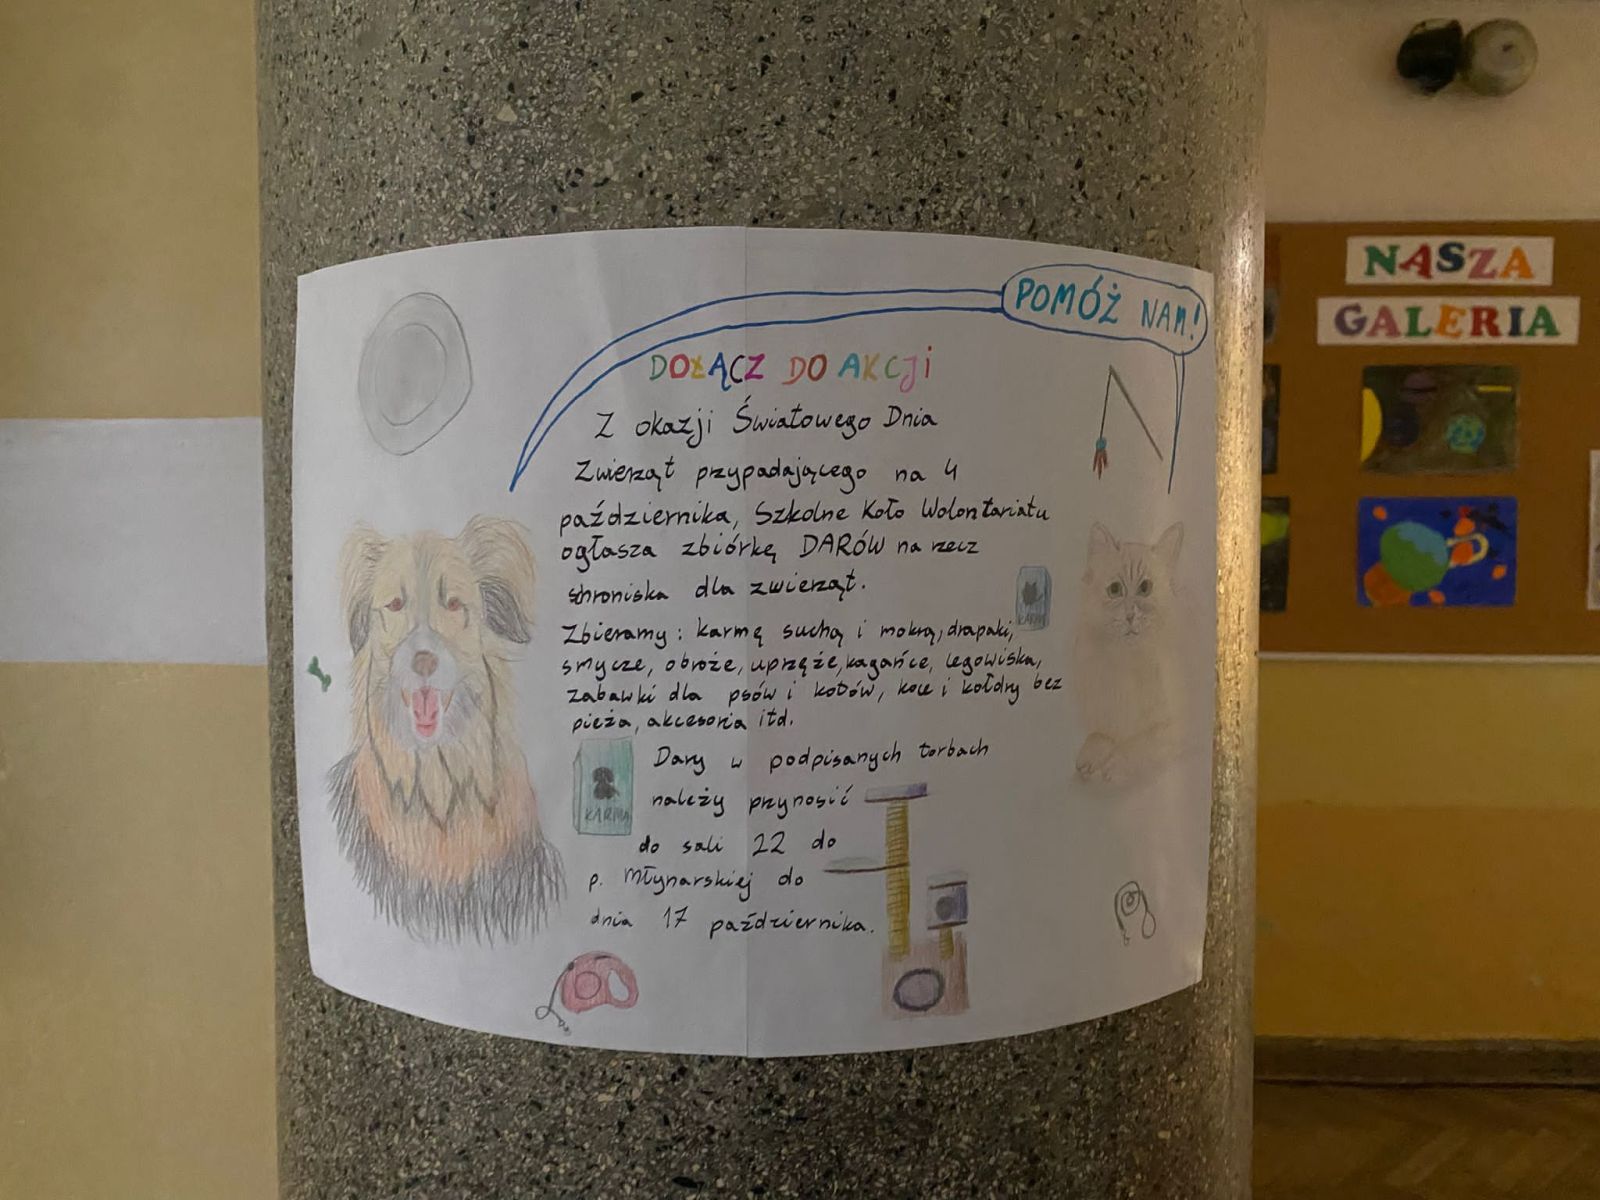 POMÓŻ NAM!
DOŁĄCZ DO AKCJI
Z okazji Światowego Dnia
Zwierząt przypadającego na 4
października, Szkolne Koło Wolontariatu
ogłasza zbiórkę DARÓW na rzecz
schroniska dla zwierząt.
Zbieramy: karmę suchą i mokrą, drapaki,
smycze, obroże, uprzęże, kagańce, legowiska,
zabawki dla psów i kotów, koce i kołdry bez
pieża, akcesoria itd.
Dary w podpisanych torbach
należy przynosić
do sali 22 do
p. Młynarskiej do
dnia 17 października.
KARMA
KARMA
NASZA
GALERIA